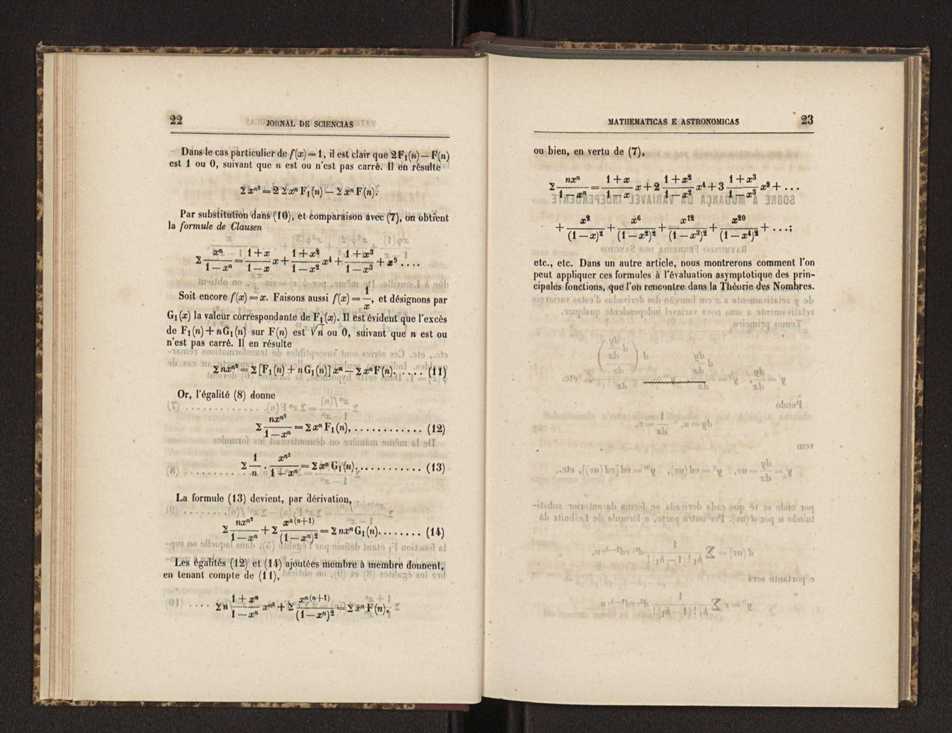 22 JORNAL DE SCIENCIAS
Dans le cas particulier de f(x) = 1, il est clair que 2F₁(n) — F(n)
est 1 ou 0, suivant que n est ou n'est pas carré. Il en résulte
Σ xⁿ² = 2 Σ xⁿ F₁(n) — Σ xⁿ F(n).
Par substitution dans (10), et comparaison avec (7), on obtient
la formule de Clausen
Σ xⁿ/(1 — xⁿ) = (1 + x)/(1 — x) x + (1 + x²)/(1 — x²) x⁴ + (1 + x³)/(1 — x³) + x⁹ ....
Soit encore f(x) = x. Faisons aussi f(x) = 1/x, et désignons par
G₁(x) la valeur correspondante de F₁(x). Il est évident que l'excès
de F₁(n) + nG₁(n) sur F(n) est √n ou 0, suivant que n est ou
n'est pas carré. Il en résulte
Σ nxⁿ² = Σ [F₁(n) + nG₁(n)] xⁿ — Σ xⁿ F(n). .... (11)
Or, l'égalité (8) donne
Σ nxⁿ²/(1 — xⁿ) = Σ xⁿ F₁(n), ............ (12)
Σ 1/n · xⁿ²/(1 — xⁿ) = Σ xⁿ G₁(n). ........... (13)
La formule (13) devient, par dérivation,
Σ nxⁿ²/(1 — xⁿ) + Σ xⁿ⁽ⁿ⁺¹⁾/(1 — xⁿ)² = Σ nxⁿ G₁(n). ....... (14)
Les égalités (12) et (14) ajoutées membre à membre donnent,
en tenant compte de (11),
Σ n (1 + xⁿ)/(1 — xⁿ) xⁿ² + Σ xⁿ⁽ⁿ⁺¹⁾/(1 — xⁿ)² = Σ xⁿ F(n),
MATHEMATICAS E ASTRONOMICAS 23
ou bien, en vertu de (7),
Σ nxⁿ/(1 — xⁿ) = (1 + x)/(1 — x) x + 2 (1 + x²)/(1 — x²) x⁴ + 3 (1 + x³)/(1 — x³) x⁹ + ...
+ x²/(1 — x)² + x⁶/(1 — x²)² + x¹²/(1 — x³)² + x²⁰/(1 — x⁴)² + ...;
etc., etc. Dans un autre article, nous montrerons comment l'on
peut appliquer ces formules à l'évaluation asymptotique des prin-
cipales fonctions, que l'on rencontre dans la Théorie des Nombres.